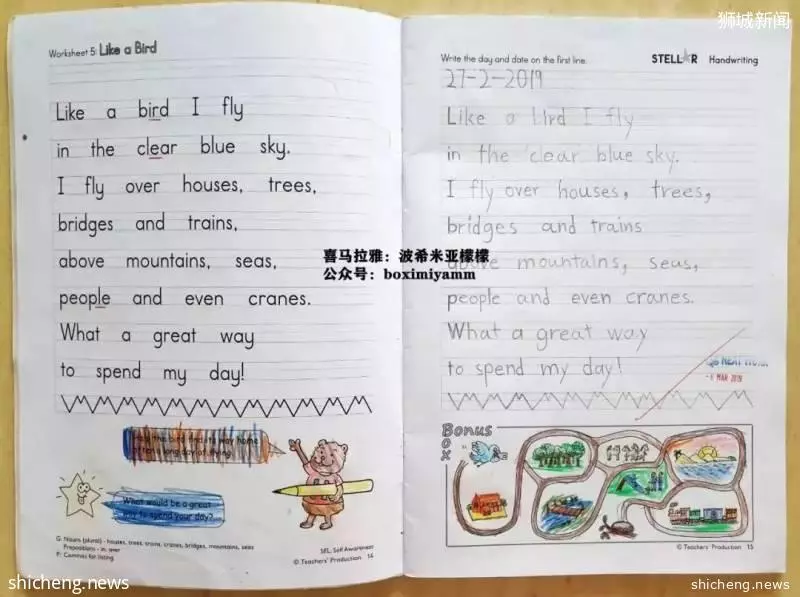 狮城新闻
Worksheet 5: Like a Bird
Like a bird I fly
in the clear blue sky.
I fly over houses, trees,
bridges and trains,
above mountains, seas,
people and even cranes.
What a great way
to spend my day!
Help the bird find its way home
after a long day of flying.
What would be a great
way to spend your day?
G: Nouns (plural) - houses, trees, trains, cranes, bridges, mountains, seas
Prepositions - in, over
P: Commas for listing
SEL: Self Awareness
© Teachers' Production 14
Write the day and date on the first line.
STELLAR Handwriting
27-2-2019
Like a bird I fly
in the clear blue sky.
I fly over houses, trees,
bridges and trains
above mountains, seas,
people and even cranes.
What a great way
to spend my day!
- 6 MAR 2019
Bonus
BOX
© Teachers' Production 15
喜马拉雅：波希米亚檬檬
公众号：boximiyamm
shicheng.news
shicheng.news